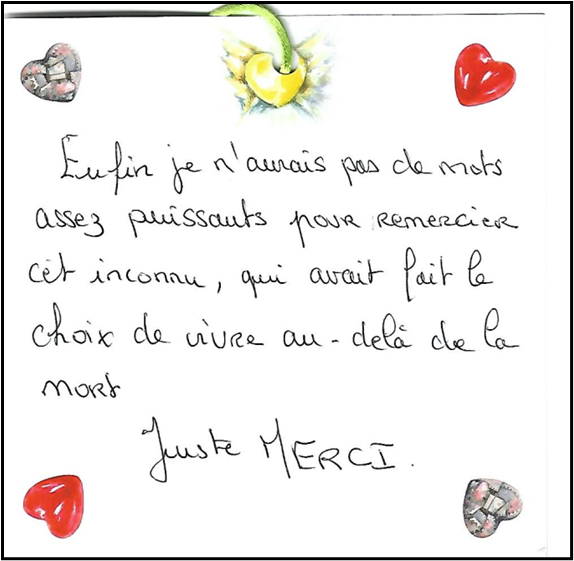 Enfin je n'aurais pas de mots
assez puissants pour remercier
cèt inconnu, qui avait fait le
choix de vivre au-delà de la
mort
Juste MERCI.